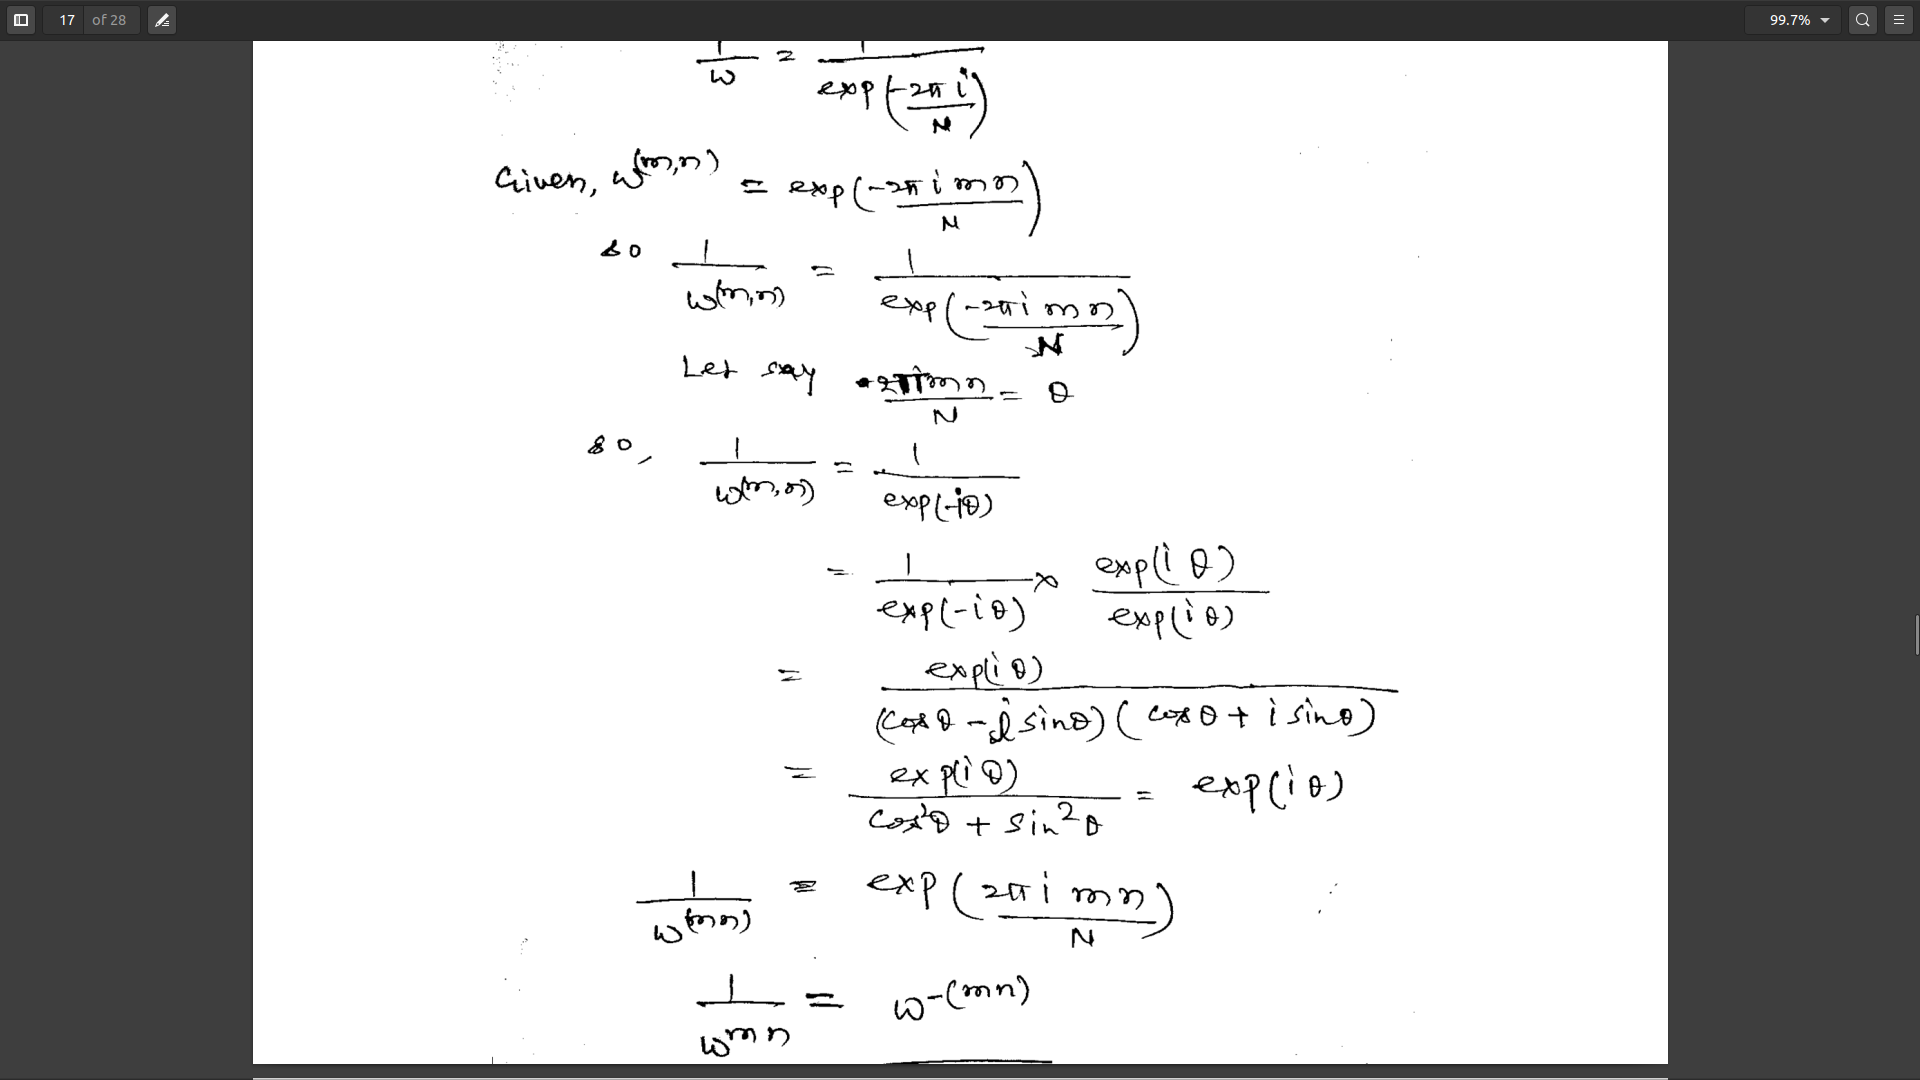 17 of 28 99.7%
1/ω = 1/exp(-2πi/N)
Given, ω^(m,n) = exp(-2πi mn/N)
so 1/ω^(m,n) = 1/exp(-2πi mn/N)
Let say 2πimn/N = θ
so, 1/ω^(m,n) = 1/exp(-iθ)
= 1/exp(-iθ) × exp(iθ)/exp(iθ)
= exp(iθ)/(cosθ - i sinθ)(cosθ + i sinθ)
= exp(iθ)/cos²θ + sin²θ = exp(iθ)
1/ω^(mn) = exp(2πi mn/N)
1/ω^mn = ω^-(mn)